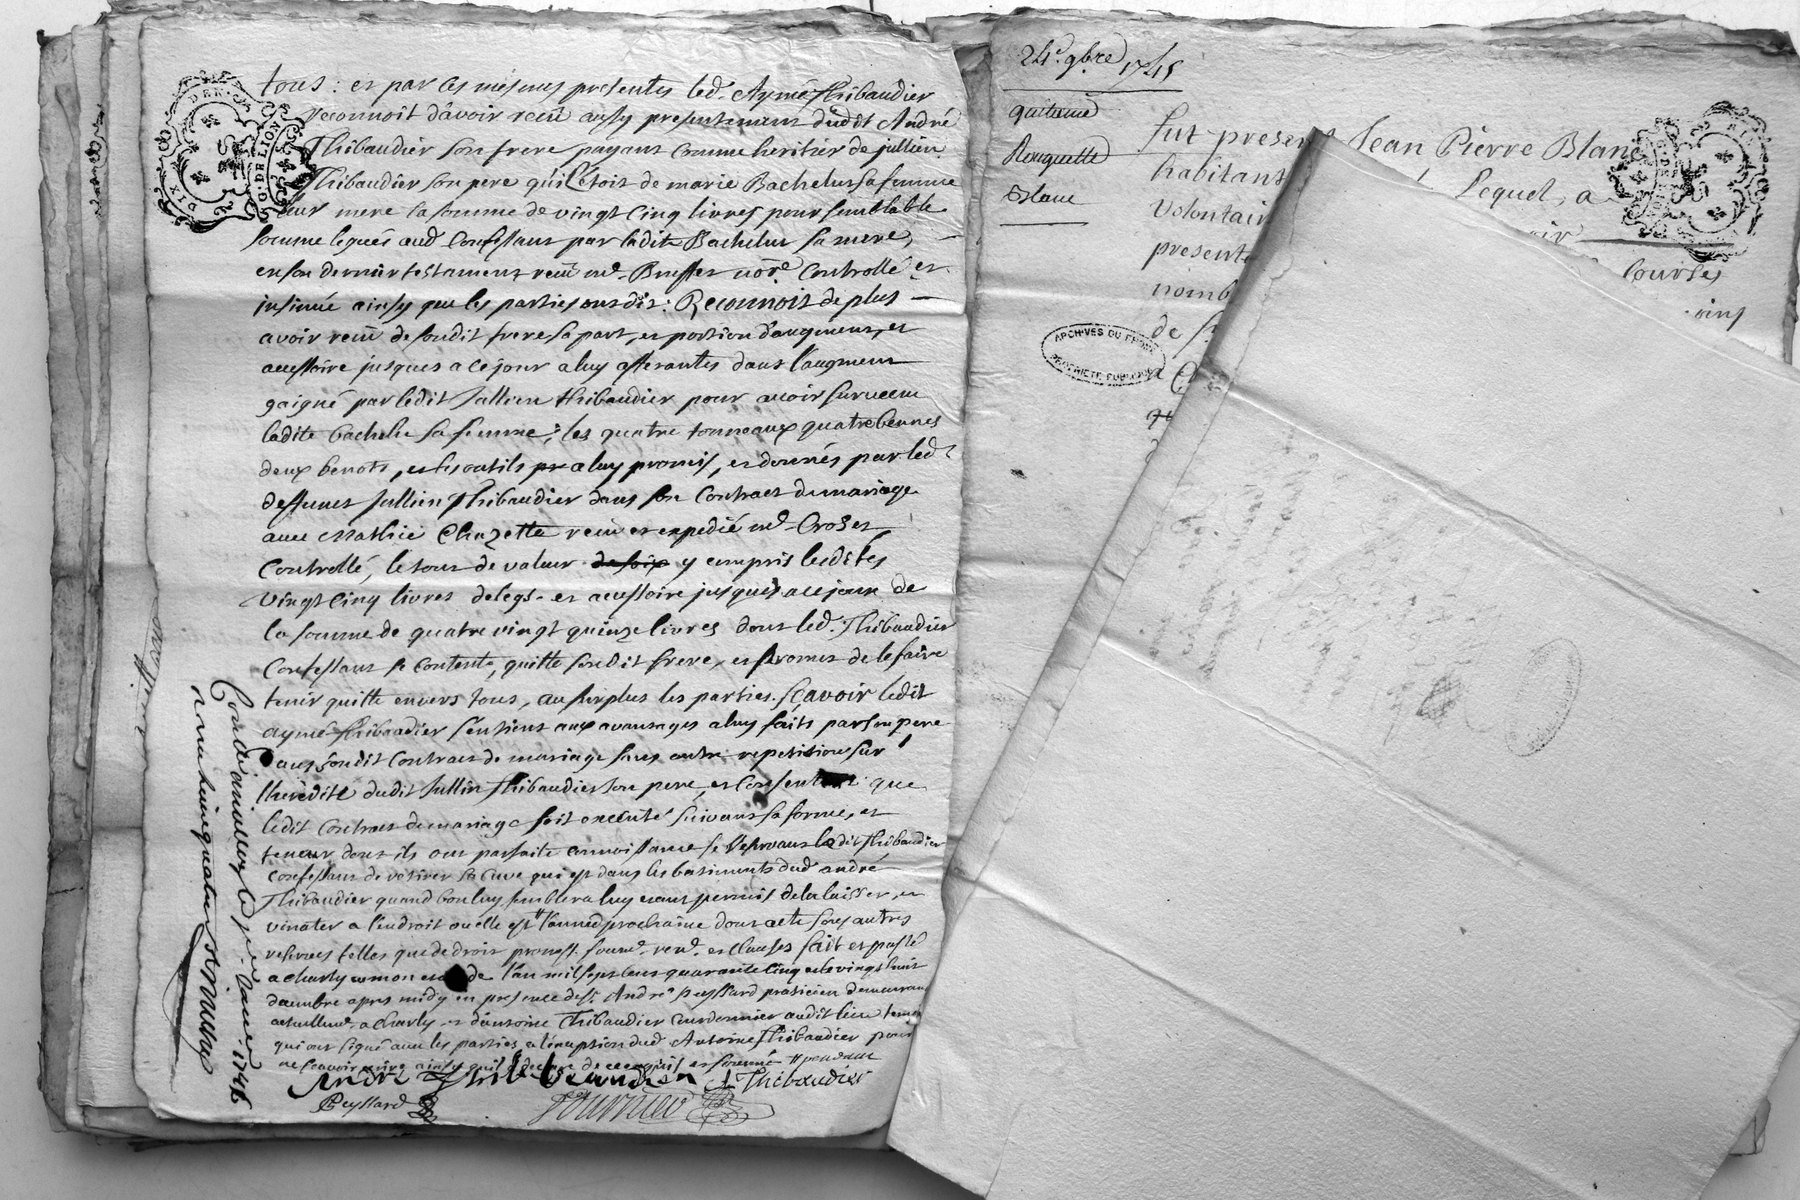 DIX DEN.
G. DE LION
tous : et par ces mesmes presentes led. Aymé Thibaudier
reconnoit d'avoir receu aussy presentement dudit André
Thibaudier son frere payant comme heritier de jullien
Thibaudier son pere qui l'etoit de marie Bachelus sa femme
leur mere la somme de vingt cinq livres pour semblable
somme leguée aud. Confessant par ladite Bachelus sa mere,
en son dernier testament receu me. nore. Controllé et
insinué ainsy que les parties ont dit : Reconnoit de plus
avoir receu de sondit frere sa part, et portion d'augment, et
accessoire jusques a ce jour a luy afferantes dans l'augment
gaigné par ledit Jullien Thibaudier pour avoir survecu
ladite bachelu sa femme ; les quatre tonneaux quatre bennes
deux benots, et les outils a luy promis, et donnés par led.
deffunt Jullien Thibaudier dans son Contract de mariage
avec Mathie Chazette receu et expedié me. Crozet
Controllé, le tout de valeur y compris lesdites
vingt cinq livres de legs et accessoire jusques a ce jour de
la somme de quatre vingt quinze livres dont led. Thibaudier
Confessant se contente, quitte sondit frere, et promet de le faire
tenir quitte envers tous, au surplus les parties sçavoir ledit
aymé Thibaudier s'en tient aux avantages a luy faits par son pere
dans sondit Contract de mariage sans autre repetition sur
l'heredité dudit Jullin Thibaudier son pere, et consentent que
ledit Contract de mariage soit executé suivant sa forme, et
teneur dont ils ont parfaite connoissance se reservant ledit Thibaudier
confessant de retirer sa cuve qui est dans les batiments dud. andré
Thibaudier quand bon luy semblera luy etant permis de la laisser, et
a l'endroit ou elle est l'année prochaine dont acte sous autres
reserves telles que de droit promess. soum. ren. et clauses fait et passé
a charly en mon etude l'an mil sept cent quarante cinq et le vingt huit
decembre apres midy en presence de sr. André Peyssard praticien demeurant
actuellemt. a charly et d'antoine Thibaudier Cordonnier audit lieu temoins
qui ont signé avec les parties a l'exception dud. Antoine Thibaudier pour
ne sçavoir ecrire ainsy qu'il a declaré de ce enquis et sommé
andré Thibeaudien A Thibaudier
Peyssard
Fournier
Controllé
le janvier 1746
24e. 9bre 1745
quittance
Rouquette
Blanc
fut present Jean Pierre Blanc
habitant
Lequel, a
volontair
present
courses
nomb
ARCHIVES DU RHONE
PROPRIETE PUBLIQUE